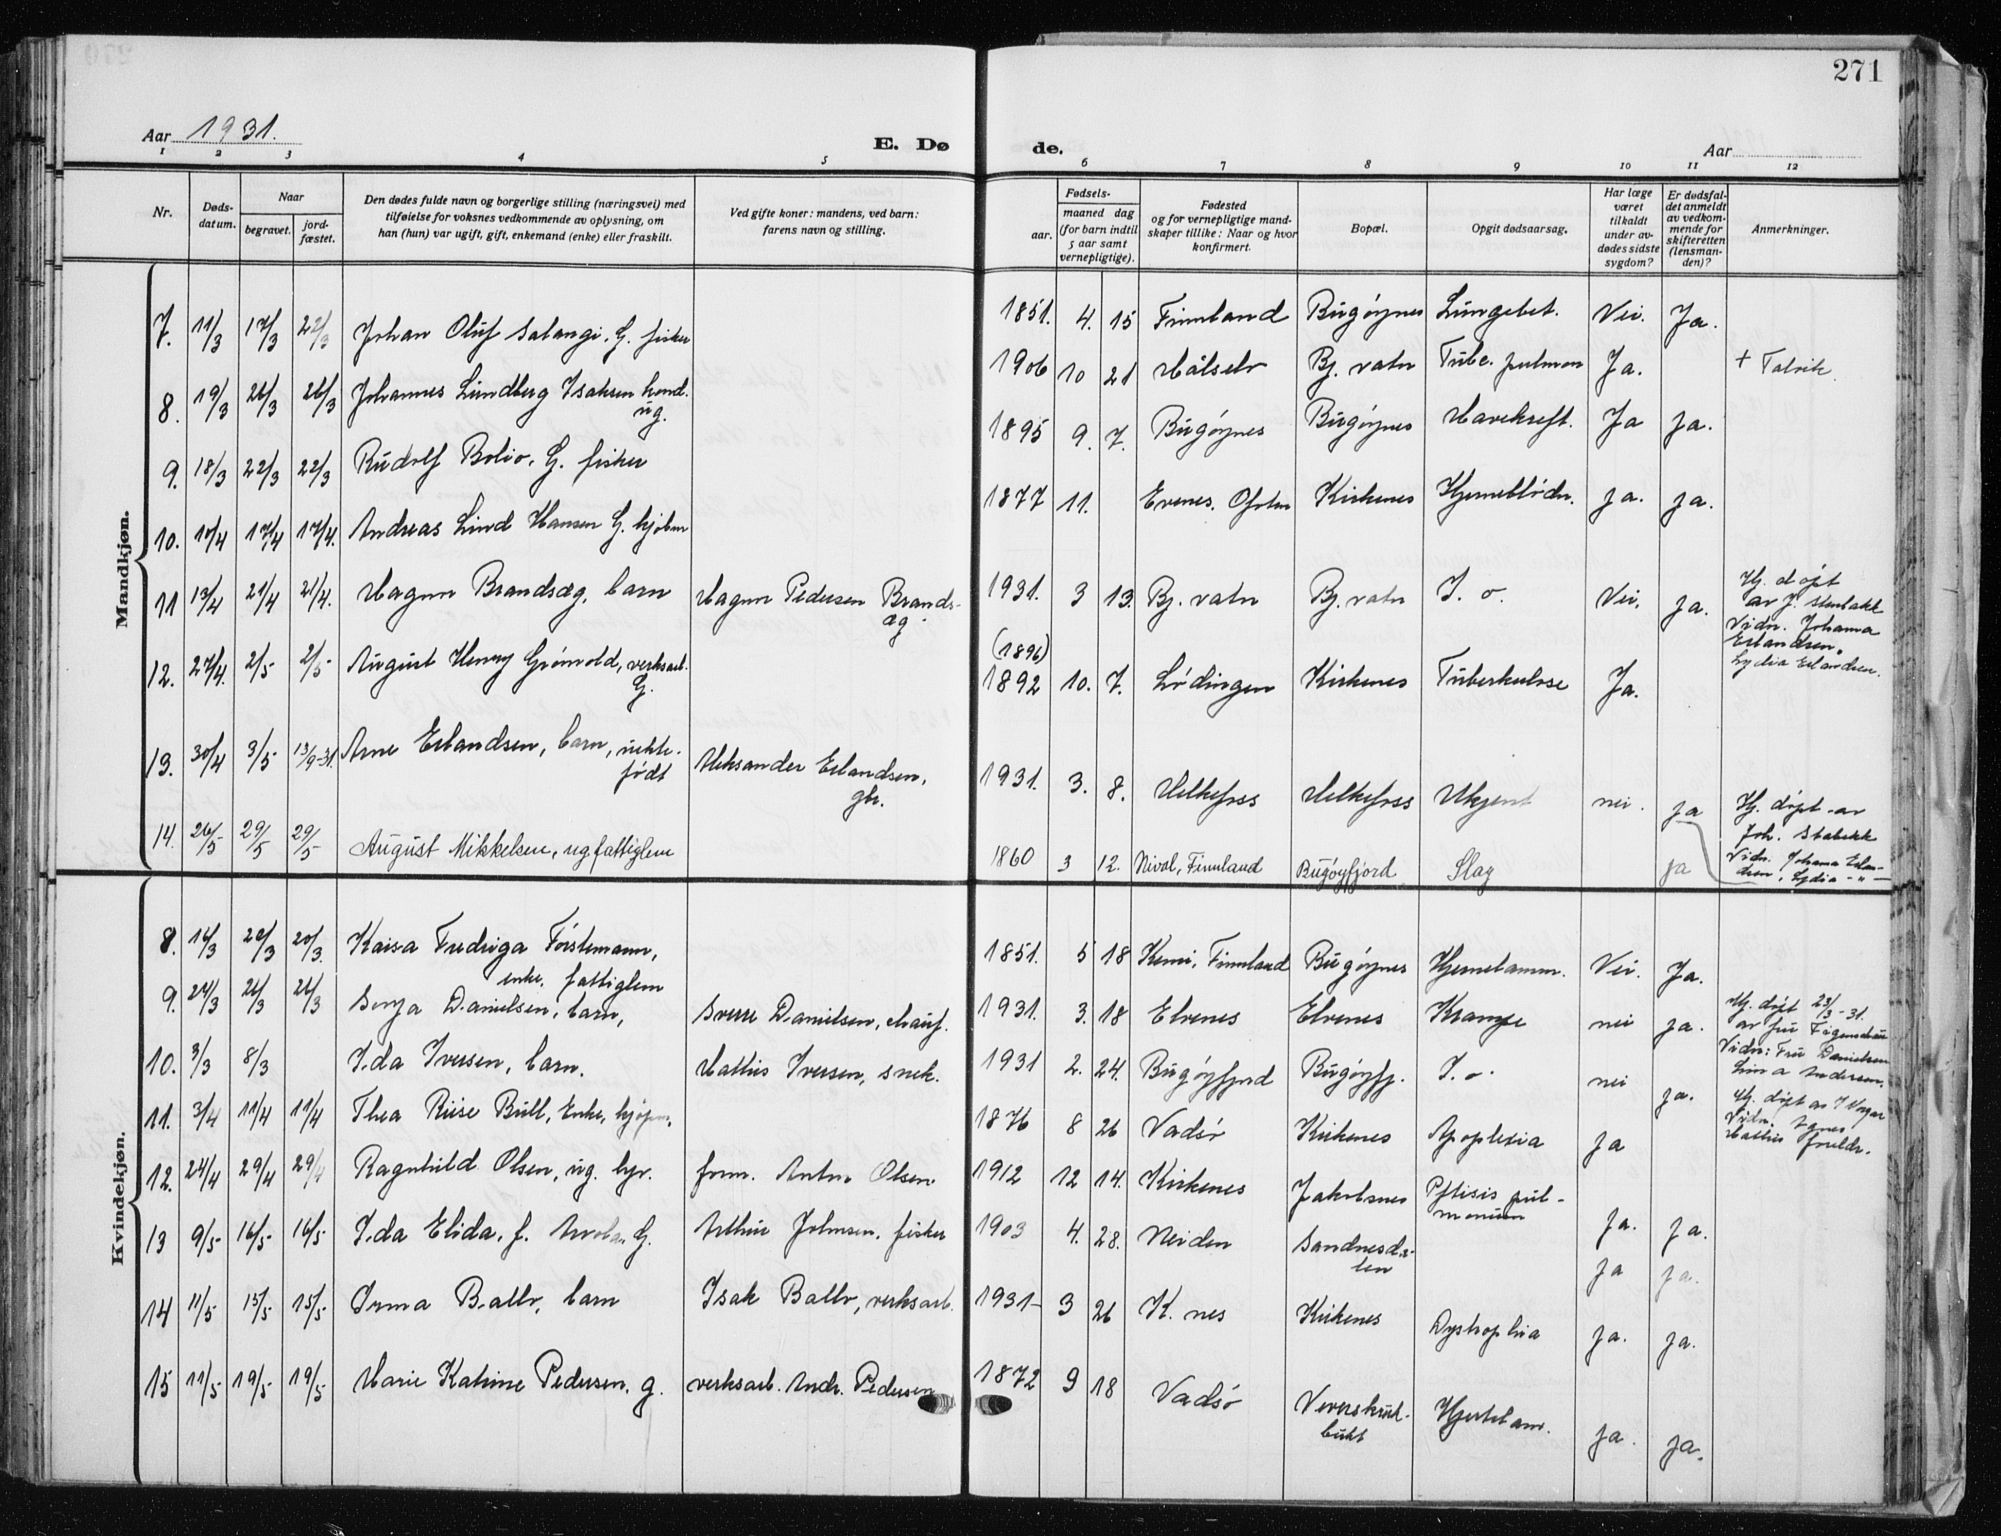 271
Aar 1931.
E. Dø
de.
Aar
1 2 3 4 5 6 7 8 9 10 11 12
Nr.
Døds-
datum.
Naar
begravet.
jord-
fæstet.
Den dødes fulde navn og borgerlige stilling (næringsvei) med
tilføielse for voksnes vedkommende av oplysning, om
han (hun) var ugift, gift, enkemand (enke) eller fraskilt.
Ved gifte koner: mandens, ved barn:
farens navn og stilling.
Fødsels-
aar.
maaned dag
(for barn indtil
5 aar samt
vernepligtige).
Fødested
og for vernepligtige mand-
skaper tillike: Naar og hvor
konfirmert.
Bopæl.
Opgit dødsaarsag.
Har læge
været
tilkaldt
under av-
dødes sidste
sygdom?
Er dødsfal-
det anmeldt
av vedkom-
mende for
skifteretten
(lensman-
den)?
Anmerkninger.
Mandkjøn.
7. 11/3 17/3 22/3 Johan Oluf Salangi, G. fisker 1851. 4. 15 Finnland Bugøynes Lungebet. Nei. Ja.
8. 19/3 26/3 26/3 Johannes Lundberg Isaksen kond.
ug. 1906 10 21 Målselv Bj. vatn Tube. pulmon Ja. + Talvik.
9. 18/3 22/3 22/3 Rudolf Bolio, G. fisker 1895 9. 7. Bugøynes Bugøynes Mavekreft. Ja Ja.
10. 10/4 17/4 17/4. Andreas Lind Hansen G. kjøbm 1877 11. Evenes. Ofoten Kirkenes Hjerneblødn. Ja. Ja.
11 13/4 21/4 21/4. Magnar Brandsæg, barn Magnar Pedersen Brands-
æg. 1931. 3 13. Bj. vatn Bj. vatn I. o. Nei. Ja. Hj. døpt
av J. Stenbakk
Vidn. Johanna
Erlandsen.
Lydia Erlandsen.
12. 27/4. 2/5 2/5 August Henry Grønvold, verksarb.
G. (1896)
1892 10. 7. Lødingen Kirkenes Tuberkulose Ja.
13. 30/4 3/5 13/9-31. Arne Erlandsen, barn, uekte-
født Aleksander Erlandsen,
gbr. 1931. 3. 8. Melkefoss Melkefoss Ukjent nei. Ja Hj. døpt av
Joh. Stabekk
Vidn. Johana Erlan-
dsen, Lydia -"-
14. 26/5 29/5 29/5 August Mikkelsen, ug. fattiglem 1860 3 12. Nivol, Finnland Bugøyfjord Slag ja
Kvindekjøn.
8. 14/3 20/3 20/3. Kaisa Fredriga Förstemann,
enke, fattiglem 1851. 5 18 Kemi, Finnland Bugøynes Hjernelamm. Nei. Ja.
9. 24/3 26/3 26/3 Sonja Danielsen, barn, Sverre Danielsen, chauf. 1931. 3. 18 Elvenes Elvenes Krampe nei Ja. Hj. døpt 23/3-31.
av fru Figenschau
Vidn: Fru Danielsen
Lina Andersen.
10. 3/3 8/3 Ida Iversen, barn. Mattis Iversen, snek. 1931 2. 24. Bugøyfjord Bugøyfj. I. o. nei Ja. Hj. døpt av
Vidn. Agnes
Mattis foreldr.
11. 3/4 11/4 11/4 Thea Riise Bull, Enke, kjøpm. 1876 8 26 Vadsø Kirkenes Apoplexia Ja
12. 24/4 29/4 29/4 Ragnhild Olsen, ug. hjv. form. Anton Olsen 1912 12 14. Kirkenes Jakobsnes Pftisis pul-
monum Ja. Ja.
13 9/5 16/5 16/5 Ida Elida, f. Arvola. G. Arthur Johnsen, fisker 1903 4. 28. Neiden Sandnesda-
len Ja Ja.
14 11/5 15/5 15/5 Irma Ballo, barn Isak Ballo, verksarb. 1931- 3 26 K. nes Kirkenes Dystrophia Ja. Ja.
15 11/5 19/5 19/5 Marie Katrine Pedersen. g. verksarb. Andr. Pedersen 1872 9 18 Vadsø
bukt Hjertelam. Ja. Ja.